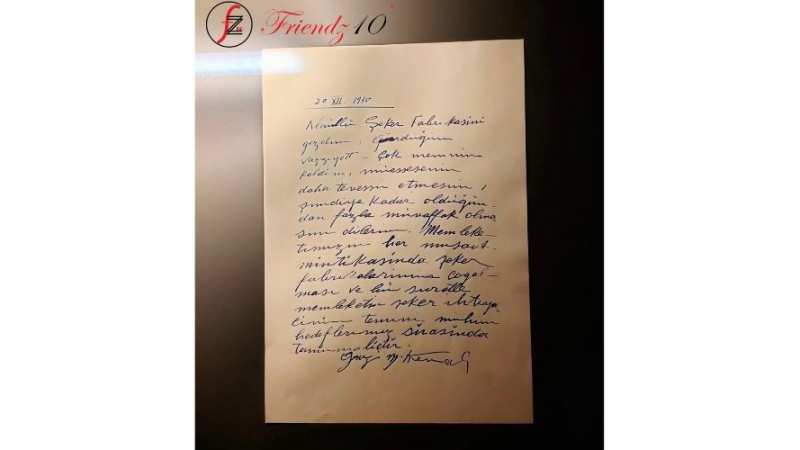 fz Friendz10
20 XII. 1930
Alpullu Şeker Fabrikasini
gezdim, gördüğüm
vaziyetten çok memnun
kaldım, müessesenin
daha tevessü etmesini,
şimdiye kadar olduğun-
dan fazla müvaffak olma
sını dilerim. Memleke
timizin her musait
mintikasında şeker
fabrikalarının çoğal-
ması ve bu suretle
memleketin şeker ihtiya
cinin temini, mühim
hedeflerimiz sirasinda
tanınmalidir.
Gazi M. Kemal